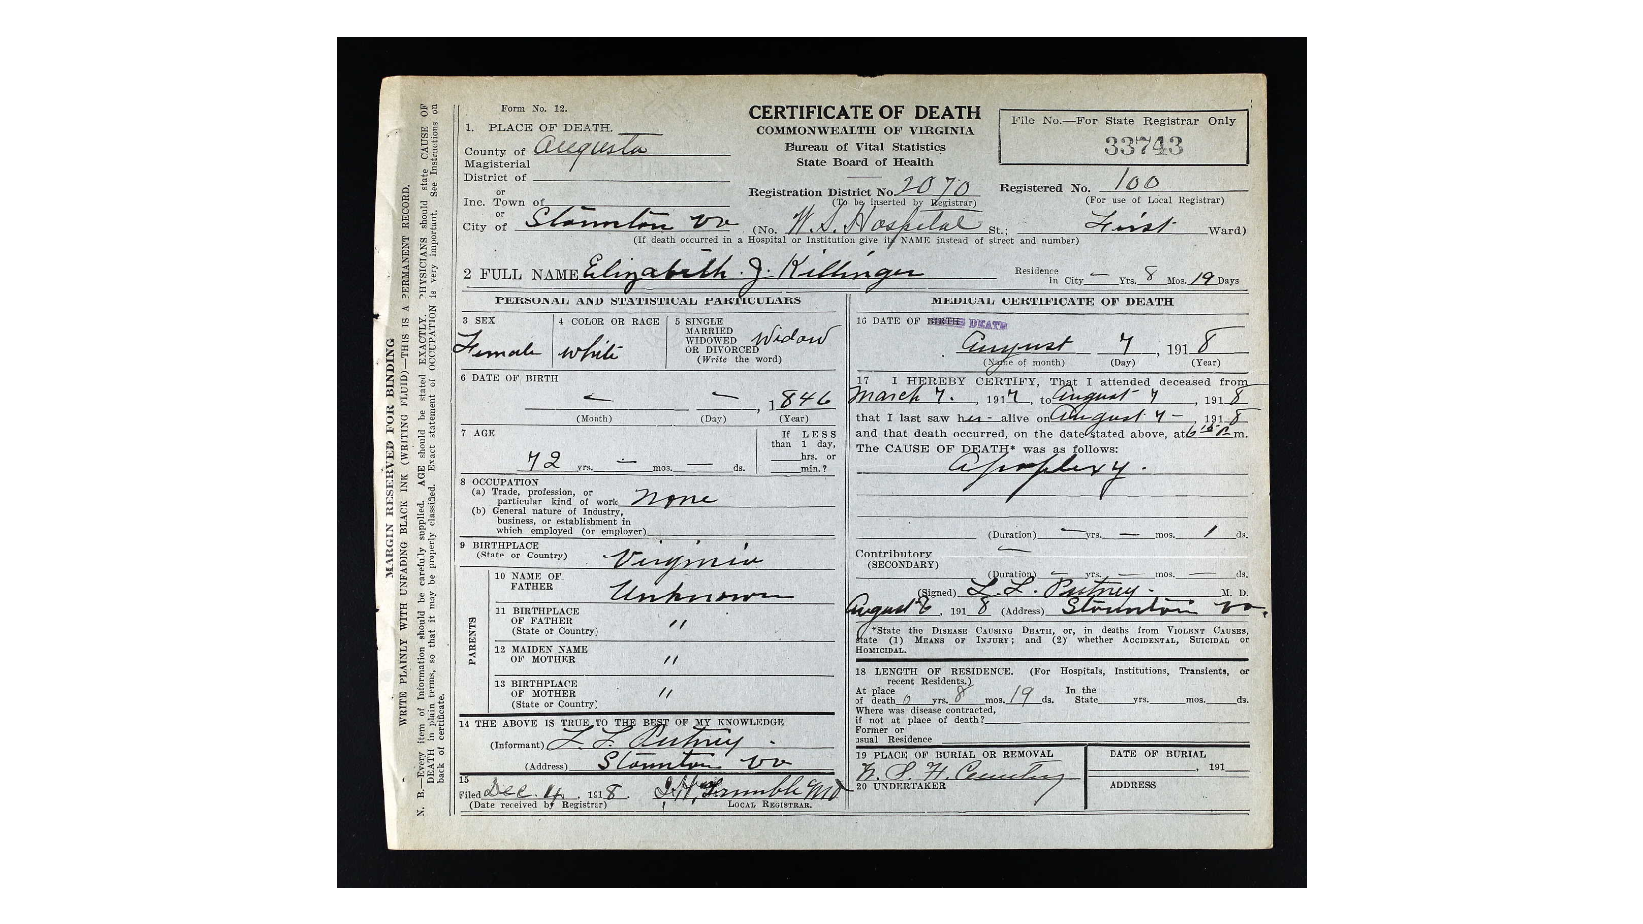 Form No. 12.
CERTIFICATE OF DEATH
COMMONWEALTH OF VIRGINIA
Bureau of Vital Statistics
State Board of Health
File No.—For State Registrar Only
33743
1. PLACE OF DEATH.
County of Augusta
Magisterial
District of
or
Inc. Town of
or
City of Staunton Va
Registration District No. 2070
(To be inserted by Registrar)
Registered No. 100
(For use of Local Registrar)
(No. W. S. Hospital St.; First Ward)
(If death occurred in a Hospital or Institution give its NAME instead of street and number)
2 FULL NAME Elizabeth J. Killinger
Residence
In City — Yrs. 8 Mos. 19 Days
PERSONAL AND STATISTICAL PARTICULARS
3 SEX
Female
4 COLOR OR RACE
white
5 SINGLE
MARRIED
WIDOWED
OR DIVORCED
(Write the word)
Widow
6 DATE OF BIRTH
— — , 1846
(Month) (Day) (Year)
7 AGE
72 yrs. — mos. — ds.
If LESS
than 1 day,
hrs. or
min.?
8 OCCUPATION
(a) Trade, profession, or
particular kind of work none
(b) General nature of Industry,
business, or establishment in
which employed (or employer)
9 BIRTHPLACE
(State or Country) Virginia
PARENTS
10 NAME OF
FATHER Unknown
11 BIRTHPLACE
OF FATHER "
(State or Country)
12 MAIDEN NAME
OF MOTHER "
13 BIRTHPLACE
OF MOTHER "
(State or Country)
14 THE ABOVE IS TRUE TO THE BEST OF MY KNOWLEDGE
(Informant) L. L. Putney
(Address) Staunton Va
15
Filed Dec. 4, 1918
(Date received by Registrar) LOCAL REGISTRAR.
MEDICAL CERTIFICATE OF DEATH
16 DATE OF BIRTH DEATH
August 7, 1918
(Name of month) (Day) (Year)
17 I HEREBY CERTIFY, That I attended deceased from
March 7. , 1917, to August 7 , 1918
that I last saw her - alive on August 7 - 1918
and that death occurred, on the date stated above, at 6 P m.
The CAUSE OF DEATH* was as follows:
Apoplexy.
(Duration) — yrs. — mos. 1 ds.
Contributory —
(SECONDARY)
(Duration) — yrs. — mos. — ds.
(Signed) L. L. Putney. M. D.
August 8, 1918 (Address) Staunton Va.
*State the DISEASE CAUSING DEATH, or, in deaths from VIOLENT CAUSES,
state (1) MEANS OF INJURY; and (2) whether ACCIDENTAL, SUICIDAL or
HOMICIDAL.
18 LENGTH OF RESIDENCE. (For Hospitals, Institutions, Transients, or
recent Residents.)
At place In the
of death 0 yrs. 8 mos. 19 ds. State yrs. mos. ds.
Where was disease contracted,
if not at place of death?
Former or
usual Residence
19 PLACE OF BURIAL OR REMOVAL
W. S. H. Cemetery
DATE OF BURIAL
, 191
20 UNDERTAKER
ADDRESS
MARGIN RESERVED FOR BINDING
WRITE PLAINLY WITH UNFADING BLACK INK (WRITING FLUID)—THIS IS A PERMANENT RECORD.
N. B.—Every item of information should be carefully supplied. AGE should be stated EXACTLY. PHYSICIANS should state CAUSE OF
DEATH in plain terms, so that it may be properly classified. Exact statement of OCCUPATION is very important. See Instructions on
back of certificate.